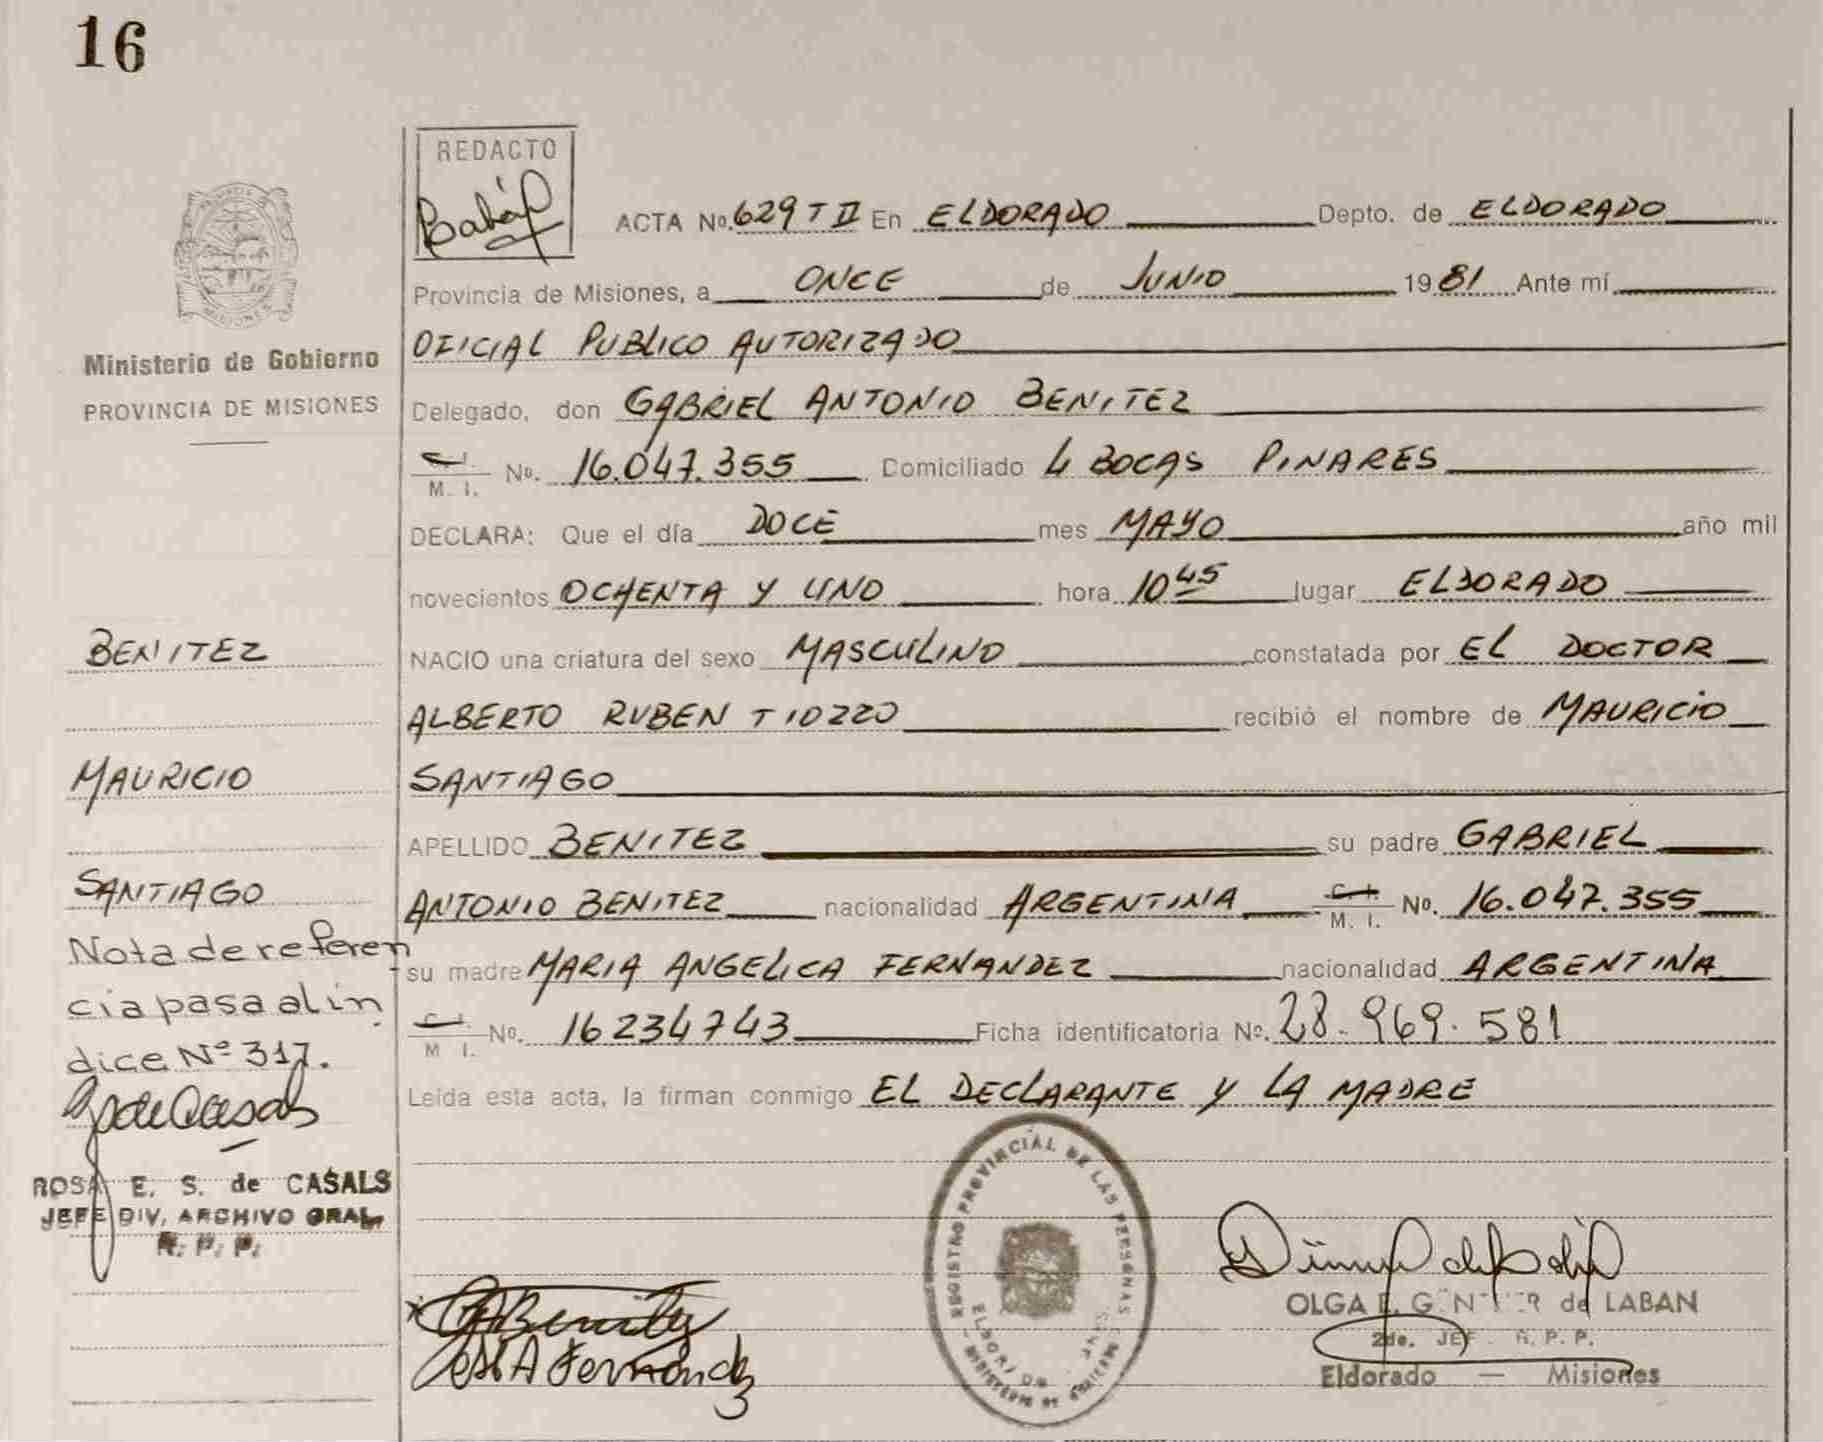 16
REDACTO
ACTA No. 629 T II En ELDORADO Depto. de ELDORADO
Provincia de Misiones, a ONCE de JUNIO 1981 Ante mí
OFICIAL PUBLICO AUTORIZADO
Delegado, don GABRIEL ANTONIO BENITEZ
C. I.
M. I. No. 16.047.355 Domiciliado 4 BOCAS PINARES
DECLARA: Que el día DOCE mes MAYO año mil
novecientos OCHENTA Y UNO hora 10 45 lugar ELDORADO
NACIO una criatura del sexo MASCULINO constatada por EL DOCTOR
ALBERTO RUBEN TIOZZO recibió el nombre de MAURICIO
SANTIAGO
APELLIDO BENITEZ su padre GABRIEL
ANTONIO BENITEZ nacionalidad ARGENTINA C. I.
M. I. No. 16.047.355
su madre MARIA ANGELICA FERNANDEZ nacionalidad ARGENTINA
C. I.
M I. No. 16234743 Ficha identificatoria No. 28.969.581
Leída esta acta, la firman conmigo EL DECLARANTE Y LA MADRE
Ministerio de Gobierno
PROVINCIA DE MISIONES
BENITEZ
MAURICIO
SANTIAGO
Nota de referen
cia pasa al ín
dice Nº 317.
ROSA E. S. de CASALS
JEFE DIV. ARCHIVO GRAL.
R. P. P.
REGISTRO PROVINCIAL DE LAS PERSONAS
MINISTERIO DE GOBIERNO
GABenitez
MA Fernandez
OLGA de LABAN
2do. JEF R. P. P.
Eldorado — Misiones